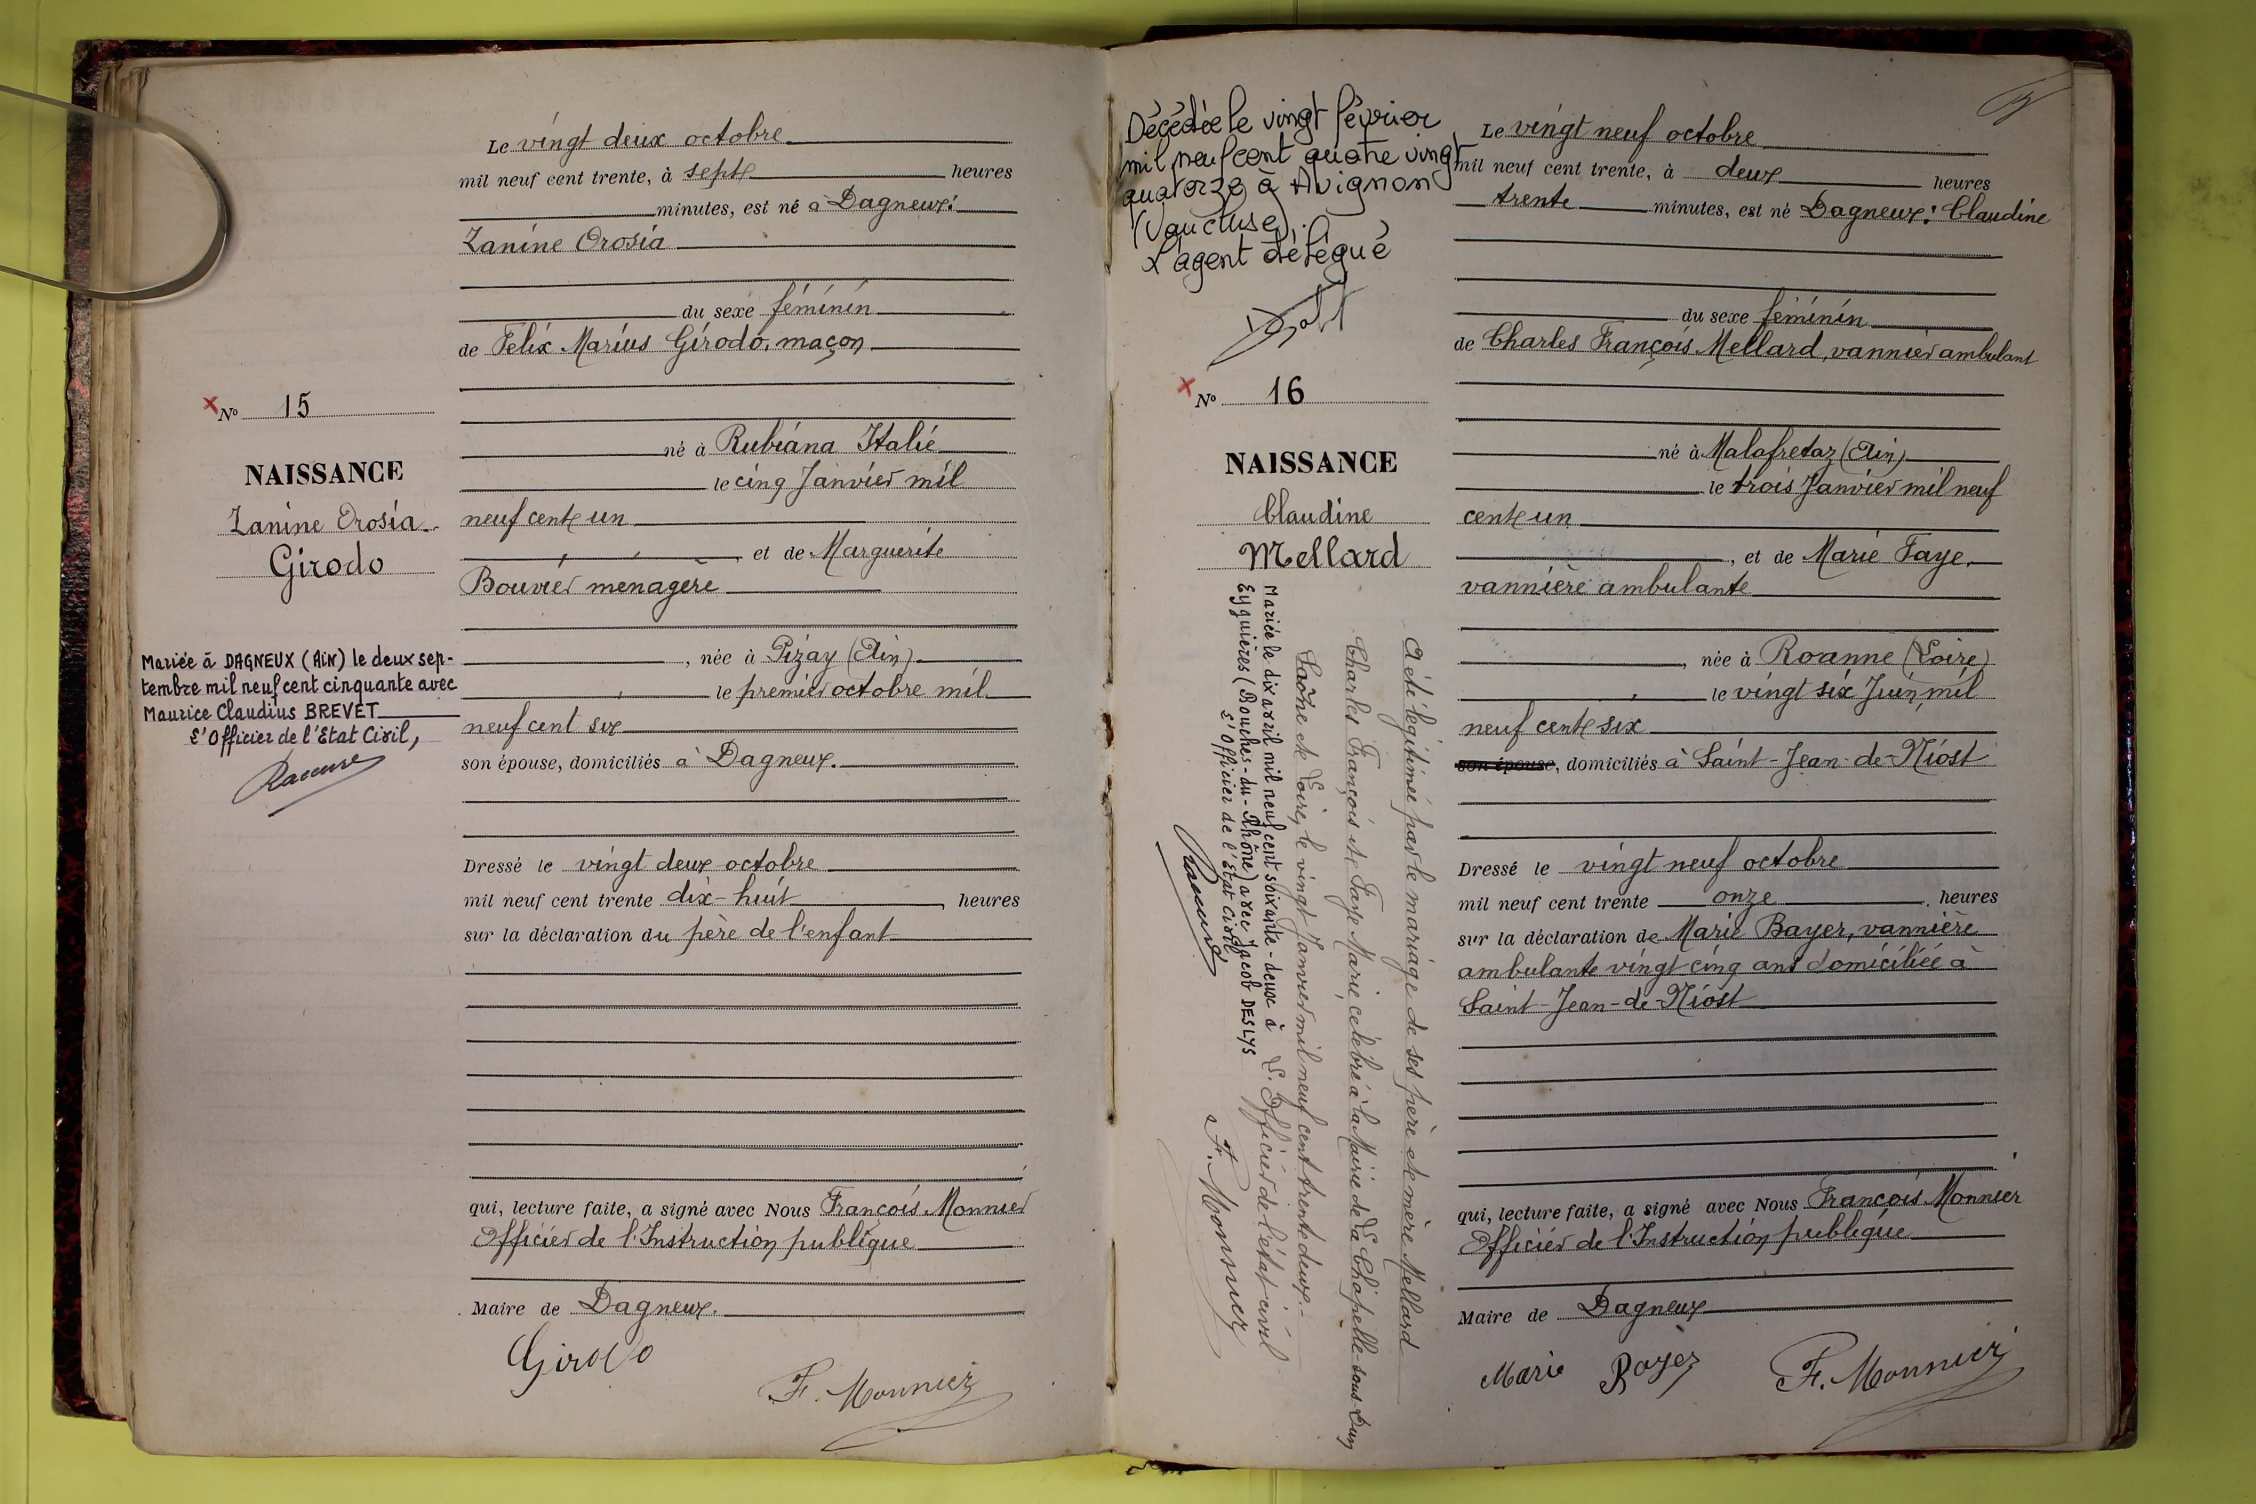 Le vingt deux octobre
mil neuf cent trente, à sept heures
minutes, est né à Dagneux:
Zanine Orosia
du sexe féminin
de Félix Marius Girodo, maçon
né à Rubiana Italie
le cinq Janvier mil
neuf cent un
et de Marguerite
Bouvier ménagère
, née à Pizay (Ain)
le premier octobre mil
neuf cent six
son épouse, domiciliés à Dagneux.
Dressé le vingt deux octobre
mil neuf cent trente dix-huit, heures
sur la déclaration du père de l'enfant
qui, lecture faite, a signé avec Nous François Monnier
Officier de l'Instruction publique
Maire de Dagneux.
Girodo
F. Monnier
No 15
NAISSANCE
Zanine Orosia
Girodo
Mariée à DAGNEUX (Ain) le deux sep-
tembre mil neuf cent cinquante avec
Maurice Claudius BREVET
L'Officier de l'Etat Civil,
Décédée le vingt février
mil neuf cent quatre vingt
quatorze à Avignon
(Vaucluse).
L'agent délégué
No 16
NAISSANCE
Claudine
Mellard
Mariée le dix avril mil neuf cent soixante-deux à
Eyguières (Bouches-du-Rhône) avec Jacob DESLYS
L'Officier de l'Etat Civil
A été légitimée par le mariage de ses père et mère Mellard
Charles François et Faye Marie, célébré à la Mairie de La Chapelle-sous-Dun
Saône et Loire, le vingt Janvier mil neuf cent trente deux.-
L'Officier de l'état civil
F. Monnier
Le vingt neuf octobre
mil neuf cent trente, à deux heures
trente minutes, est né Dagneux: Claudine
du sexe féminin
de Charles François Mellard, vannier ambulant
né à Malafretaz (Ain)
le trois Janvier mil neuf
cent un
, et de Marie Faye
vannière ambulante
, née à Roanne (Loire)
le vingt six Juin, mil
neuf cent six
son épouse, domiciliés à Saint-Jean-de-Niost
Dressé le vingt neuf octobre
mil neuf cent trente onze heures
sur la déclaration de Marie Bayer, vannière
ambulante vingt cinq ans domiciliée à
Saint-Jean-de-Niost
qui, lecture faite, a signé avec Nous François Monnier
Officier de l'Instruction publique
Maire de Dagneux
Marie Bayer
F. Monnier